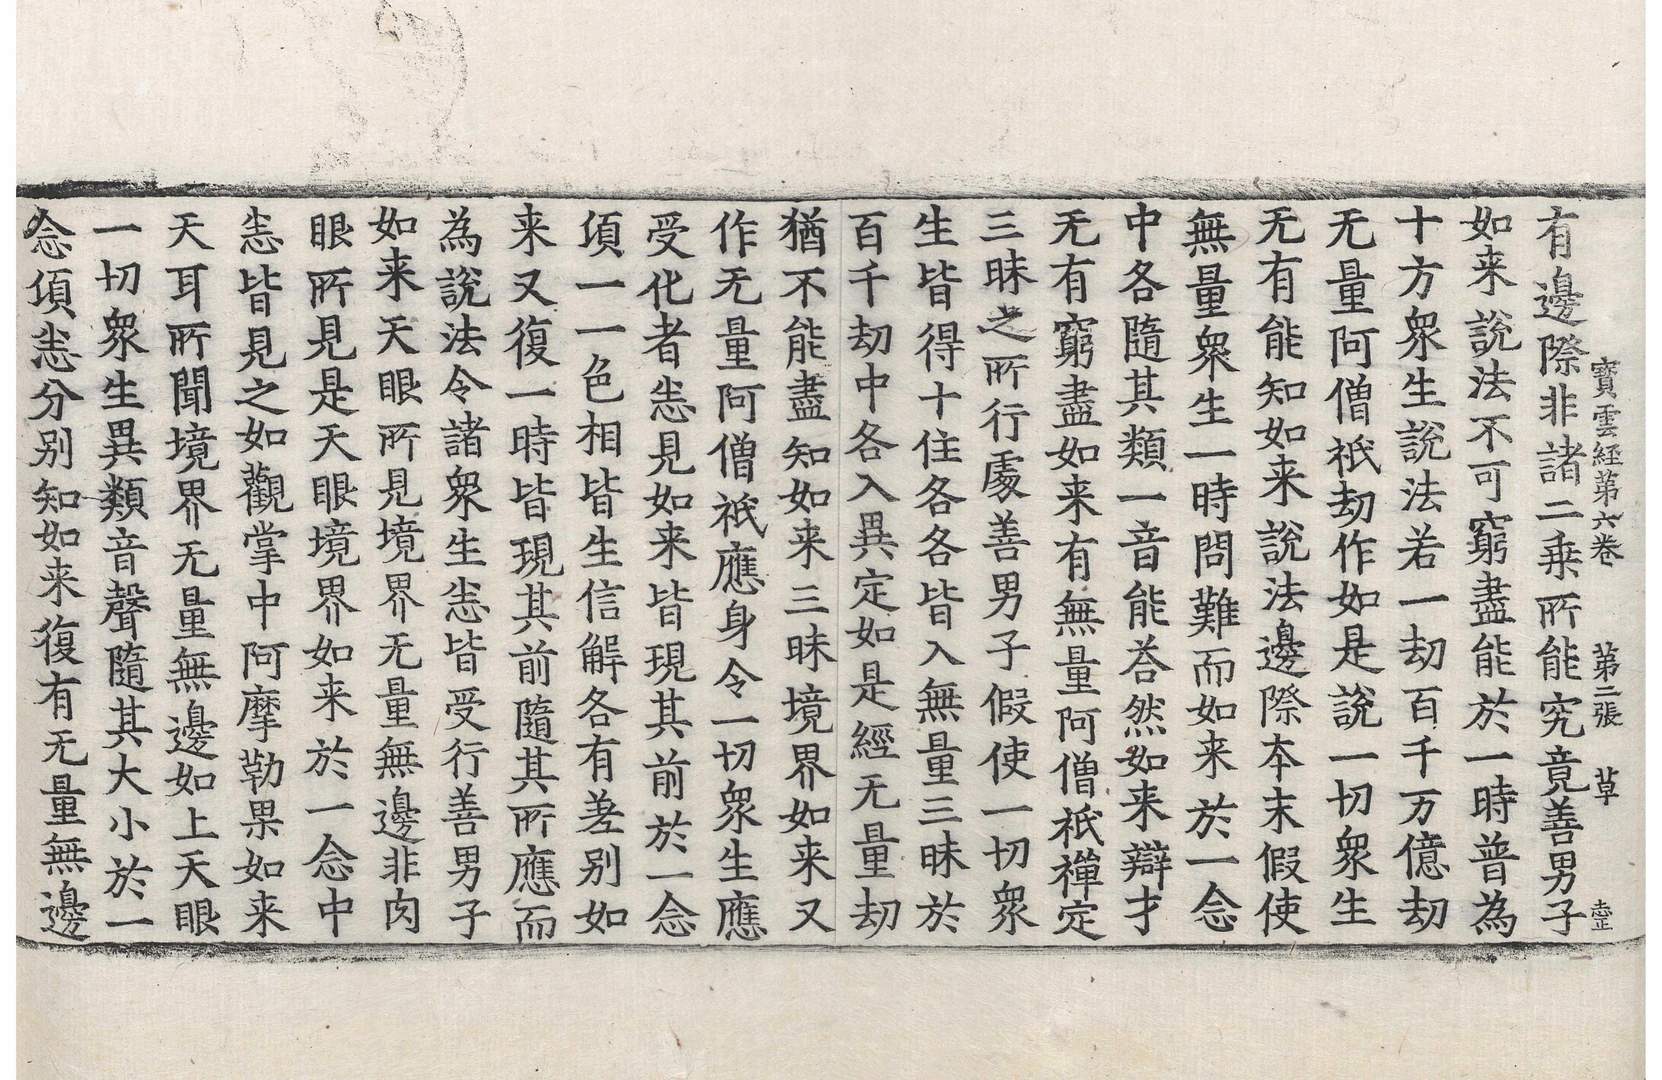 寳雲經第六卷　第二張　草
有邊際非諸二乗所能究竟善男子
如来說法不可窮盡能於一時普為
十方衆生說法若一劫百千万億劫
无量阿僧祇劫作如是說一切衆生
无有能知如来說法邊際本末假使
無量衆生一時問難而如来於一念
中各隨其類一音能荅然如来辯才
无有窮盡如来有無量阿僧祇禪定
三昧之所行處善男子假使一切衆
生皆得十住各各皆入無量三昧於
百千劫中各入異定如是經无量劫
猶不能盡知如来三昧境界如来又
作无量阿僧祇應身令一切衆生應
受化者恚見如来皆現其前於一念
項一一色相皆生信解各有差别如
来又復一時皆現其前隨其所應而
為說法令諸衆生恚皆受行善男子
如来天眼所見境界无量無邊非肉
眼所見是天眼境界如来於一念中
恚皆見之如觀掌中阿摩勒果如来
天耳所聞境界无量無邊如上天眼
一切衆生異類音聲隨其大小於一
念項恚分别知如来復有无量無邊